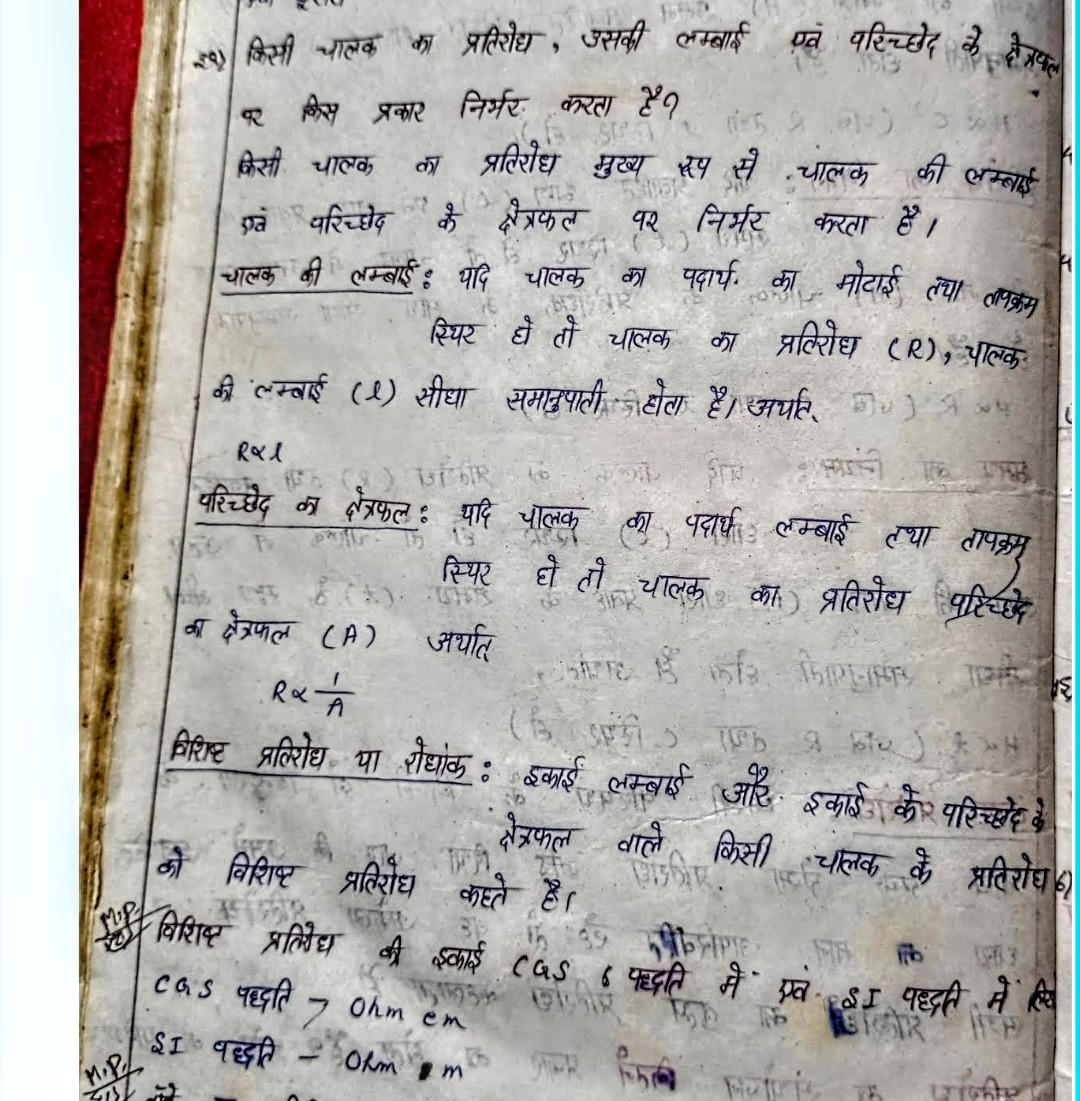 किसी चालक का प्रतिरोध, उसकी लम्बाई एवं परिच्छेद के क्षेत्रफल
पर किस प्रकार निर्भर करता है?
किसी चालक का प्रतिरोध मुख्य रूप से चालक की लम्बाई
एवं परिच्छेद के क्षेत्रफल पर निर्भर करता है।
चालक की लम्बाई : यदि चालक का पदार्थ का मोटाई तथा तापक्रम
स्थिर हो तो चालक का प्रतिरोध (R), चालक
की लम्बाई (l) सीधा समानुपाती होता है। अर्थात्
R∝l
परिच्छेद का क्षेत्रफल : यदि चालक का पदार्थ लम्बाई तथा तापक्रम
स्थिर हो तो चालक का प्रतिरोध परिच्छेद
का क्षेत्रफल (A) अर्थात्
R ∝ 1/A
विशिष्ट प्रतिरोध या रोधांक : इकाई लम्बाई और इकाई के परिच्छेद के
क्षेत्रफल वाले किसी चालक के प्रतिरोध
को विशिष्ट प्रतिरोध कहते है।
M.P.
विशिष्ट प्रतिरोध की इकाई CGS पद्धति में एवं SI पद्धति में
CGS पद्धति → Ohm cm
SI पद्धति – Ohm m
M.P.